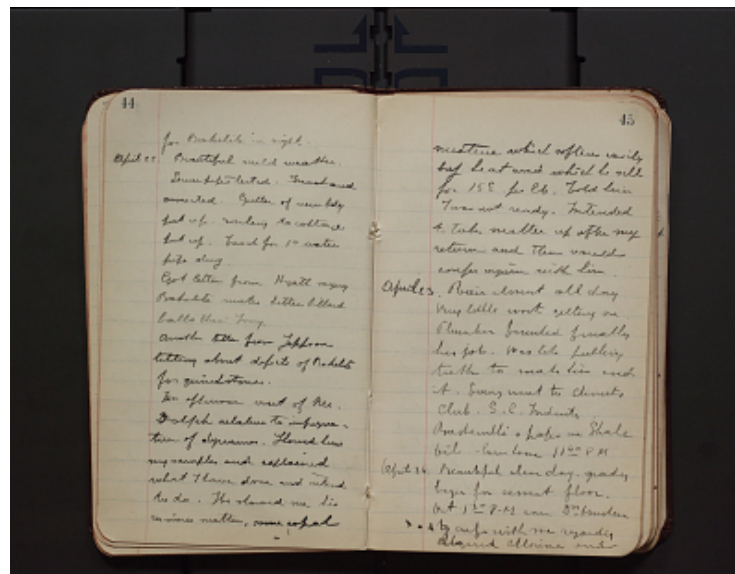 44
for Bakelite in sight.
April 22. Beautiful mild weather.
Sewer pipe tested. Trench and
connected. Gutter of new bldg
put up. to cottage
put up. Trench for 1" water
pipe dug.
Got letter from Hyatt saying
Bakelite makes better billard
balls than Ivory.
Another letter from Jeppson
telling about defects of Bakelite
for grindstones.
In afternoon went of Rec.
Dolph relative to impregna-
tion of dynamos. Showed him
my samples and explained
what I have done and intend
to do. He showed me his
resinous matter, copal
45
mixture which softens easily
by heat and which he sells
for 15¢ per lb. Told him
I was not ready. Intended
to take matter up after my
return and then would
confer again with him.
April 23. Rain almost all day
very little work getting on
Plumber finished finally
his job. Was like pulling
teeth to make him end
it. Evening went to Chemists
Club. S.C. Industry.
paper on Shale
Oil. home 11 P.M
April 24. Beautiful clear day.
begun for cement floor.
At 1 P.M came
to confer with me regarding
Chlorine